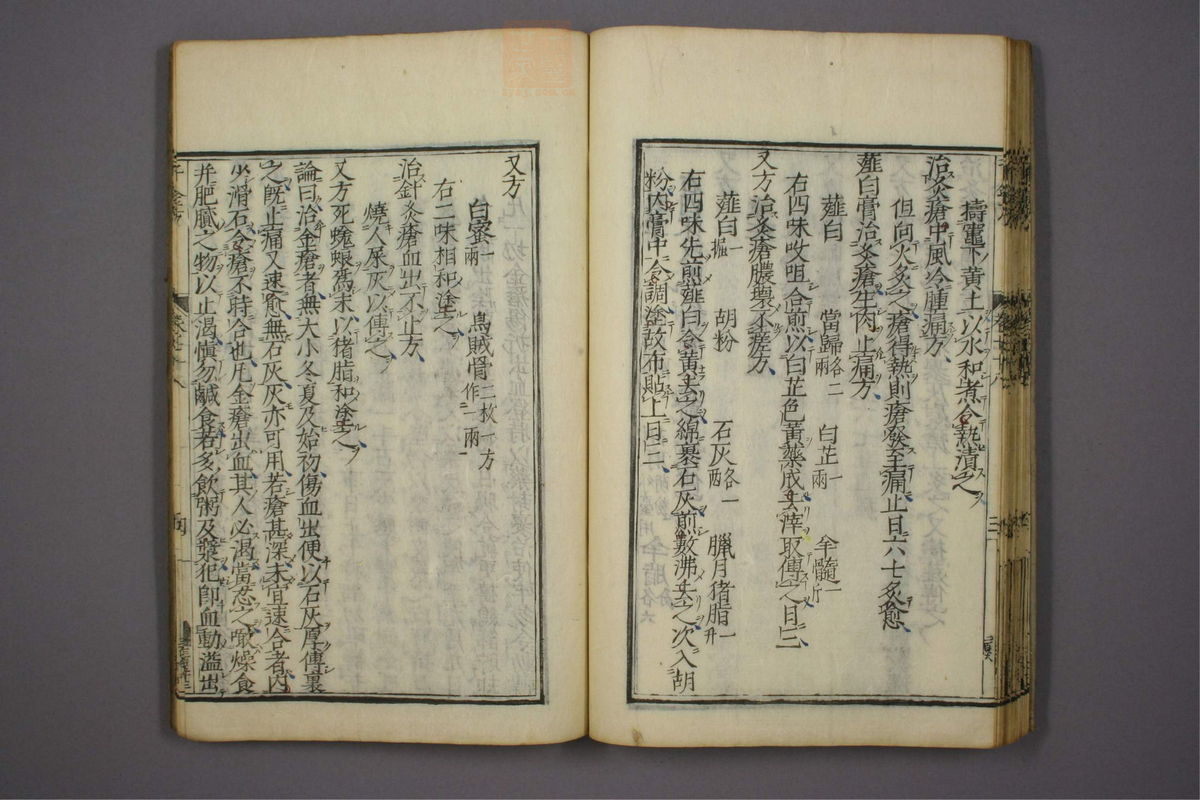 擣竈下黃土以水和煮令熱漬之
治灸瘡中風冷腫痛方
但向火灸之瘡得熱則瘡發至痛止日六七灸愈
薤白膏治灸瘡生肉止痛方
薤白 當歸各二兩 白芷一兩 羊髓一斤
右四味㕮咀合煎以白芷色黃藥成去滓取傅之日三
又方治灸瘡膿壞不瘥方
薤白一握 胡粉 石灰各一兩 臘月猪脂一升
右四味先煎薤白令黃去之綿裹石灰煎數沸去之次入胡
粉內膏中令調塗故布貼上日三
又方
白蜜一兩 烏賊骨二枚一方作一兩
右二味相和塗之
治針灸瘡血出不止方
燒人屎灰以傅之
又方死蜣蜋爲末以猪脂和塗之
論曰治金瘡者無大小冬夏及始初傷血出便以石灰厚傅裹
之旣止痛又速愈無石灰灰亦可用若瘡甚深未宜速合者內
少滑石令瘡不時合也凡金瘡出血其人必渴當忍之啖燥食
并肥膩之物以止渴愼勿鹹食若多飮粥及漿犯卽血動溢出